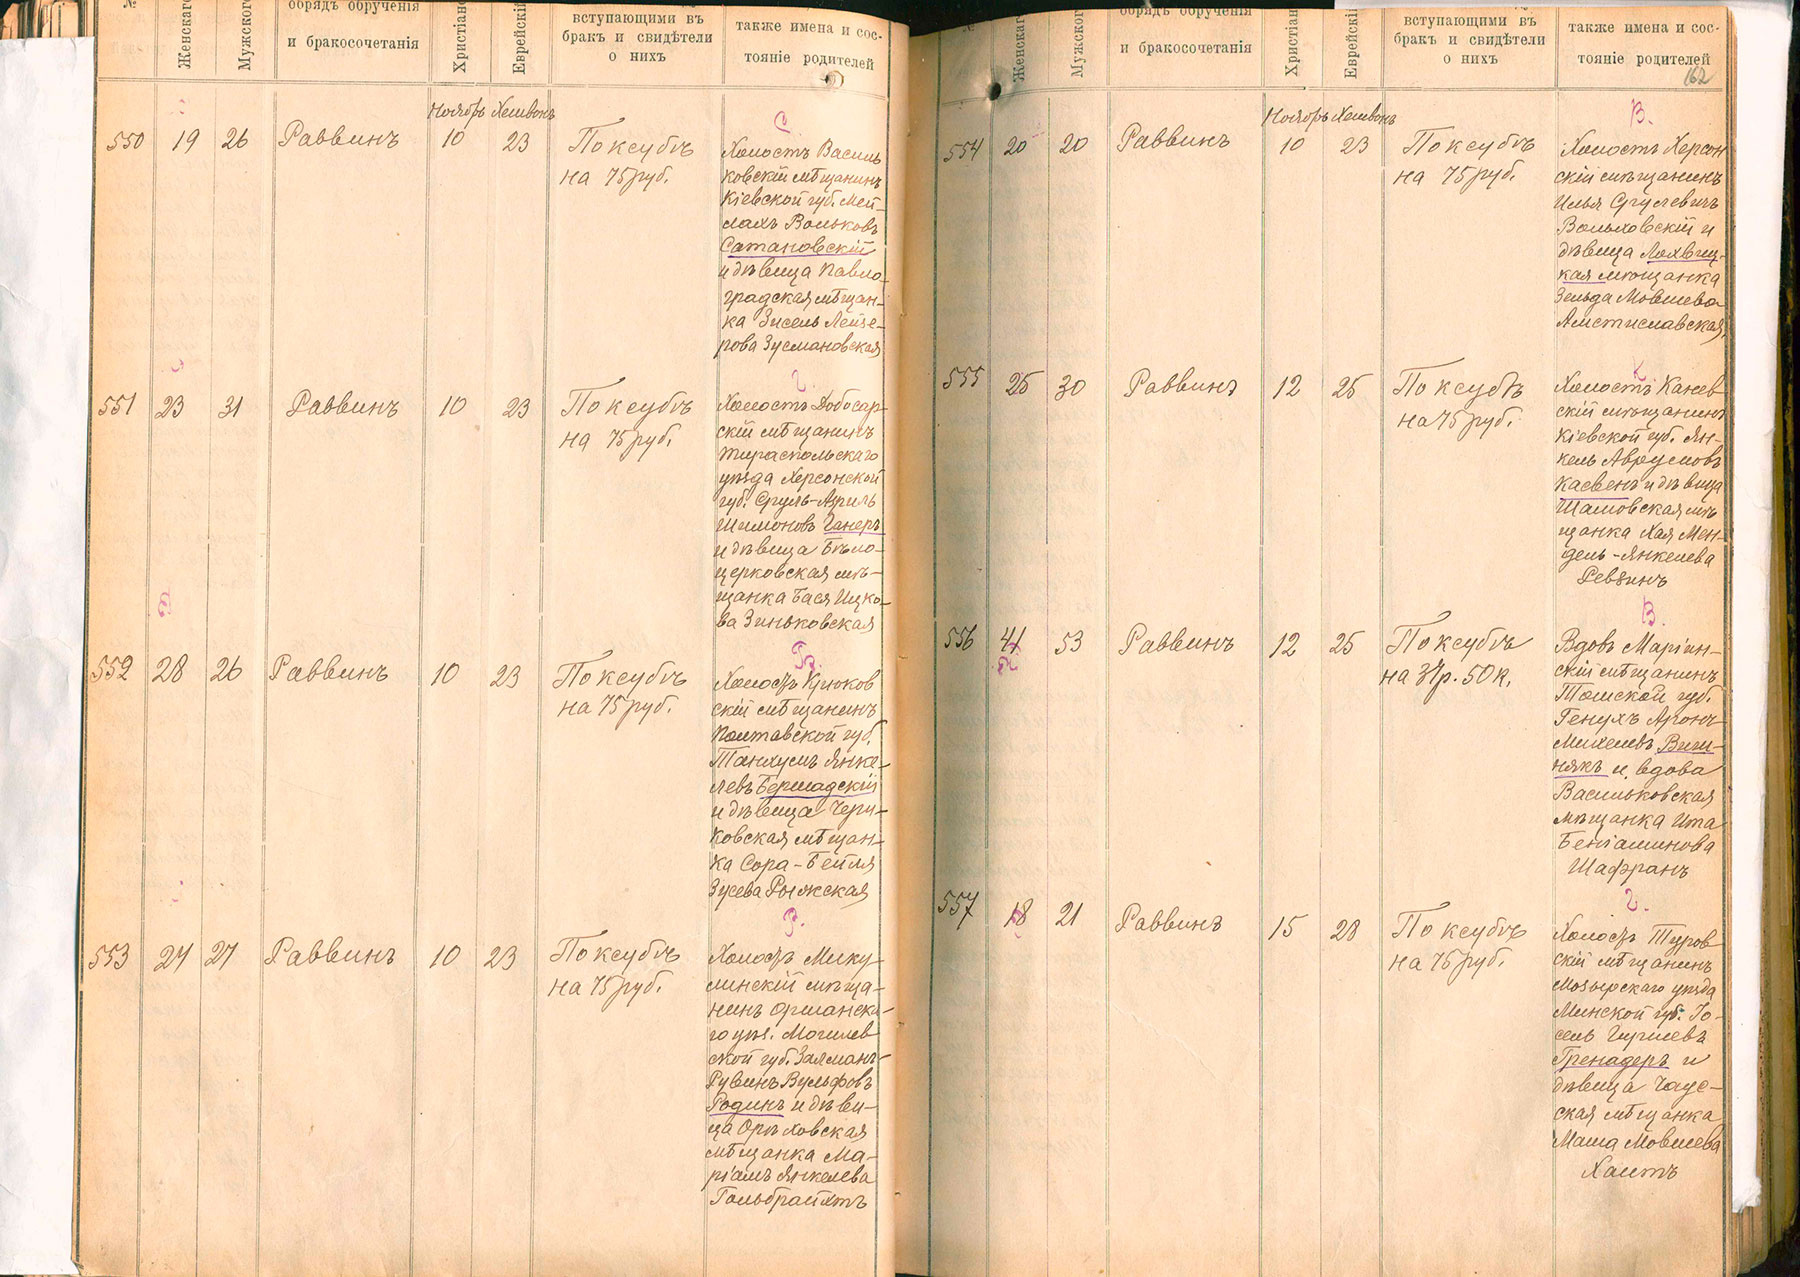 №
Женскаго
Мужского
обрядъ обрученія
и бракосочетанія
Христіан
Еврейскій
вступающими въ
бракъ и свидѣтели
о нихъ
также имена и сос-
тояніе родителей
Ноябрь Хешвонъ
550 19 26 Раввинъ 10 23
По ксубѣ
на 75 руб.
С.
Холостъ Василь
ковскій мѣщанинъ
Кіевской губ. Мей-
лахъ Вольковъ
Сатановскій
и дѣвица Павло-
градская мѣщан-
ка Зисель Лейзе-
рова Зусмановская
551 23 31 Раввинъ 10 23
По ксубѣ
на 75 руб.
Г.
Холостъ Дубосар-
скій мѣщанинъ
Тираспольскаго
уѣзда Херсонской
губ. Сруль-Азриль
Шимоновъ Ганеръ
и дѣвица Бѣло-
церковская мѣ-
щанка Бася Ицко-
ва Зиньковская
552 28 26 Раввинъ 10 23
По ксубѣ
на 75 руб.
Б.
Холостъ Крюков
скій мѣщанинъ
Полтавской губ.
Танхумъ Янке-
левъ Бершадскій
и дѣвица Чери-
ковская мѣщан-
ка Сора-Бейля
Зусева Рыжская
553 24 27 Раввинъ 10 23
По ксубѣ
на 75 руб.
Р.
Холостъ Мику-
линскій мѣща-
нинъ Оршанска-
го уѣз. Могилев
ской губ. Залманъ-
Рувинъ Вульфовъ
Родинъ и дѣви-
ца Орѣховская
мѣщанка Ма-
ріамъ Янкелева
Гольбрайхтъ
№
Женскаг
Мужского
обрядъ обрученія
и бракосочетанія
Христіан
Еврейскій
вступающими въ
бракъ и свидѣтели
о нихъ
также имена и сос-
тояніе родителей
162
Ноябрь Хешвонъ
554 20 20 Раввинъ 10 23
По ксубѣ
на 75 руб.
В.
Холостъ Херсон
скій мѣщанинъ
Илья Срулевичъ
Вольховскій и
дѣвица Лохвиц-
кая мѣщанка
Зельда Мовшева
Амстиславская
555 25 30 Раввинъ 12 25
По ксубѣ
на 75 руб.
К.
Холостъ Канев
скій мѣщанинъ
Кіевской губ. Ян-
кель Аврумовъ
Касвенъ и дѣвица
Шамовская мѣ
щанка Хая Мен-
дель-Янкелева
Ревзинъ
556 41 53 Раввинъ 12 25
По ксубѣ
на 37р. 50к.
В.
Вдовъ Маріин-
скій мѣщанинъ
Томской губ.
Генухъ Аронъ-
Михелевъ Виш-
някъ и вдова
Васильковская
мѣщанка Ита
Беніаминова
Шафранъ
557 18 21 Раввинъ 15 28
По ксубѣ
на 75 руб.
Г.
Холостъ Туров
скій мѣщанинъ
Мозырскаго уѣзда
Минской губ. Іо-
сель Гиршевъ
Гренадеръ и
дѣвица Чаус-
ская мѣщанка
Маша Мовшева
Хаитъ